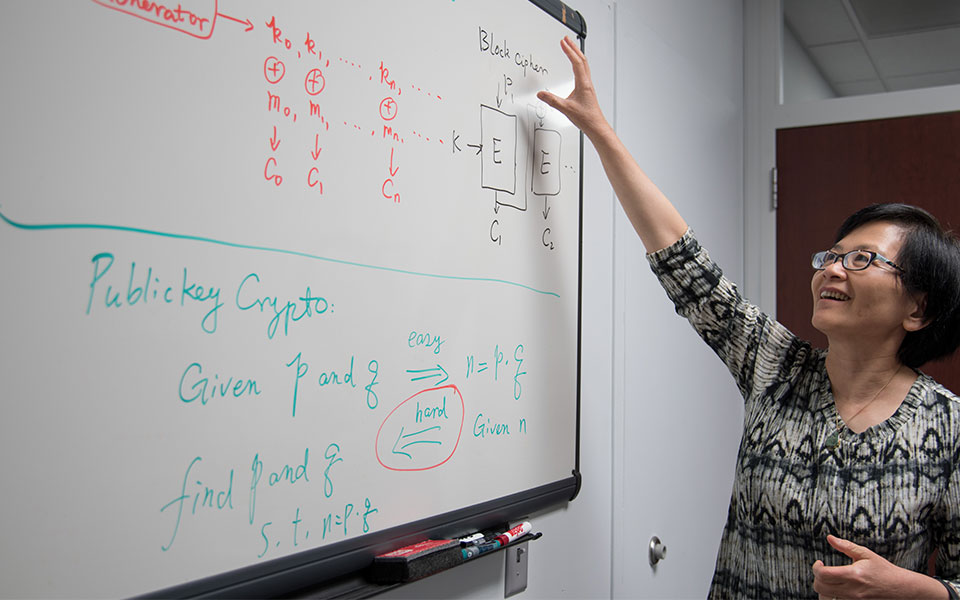 Generator
k₀, k₁, ..... kₙ, .....
+ + +
m₀, m₁, ..... mₙ, .....
C₀ C₁ Cₙ
Block cipher
P₁
K → E E ...
C₁ C₂
Public key Crypto:
Given p and q easy ⇒ n = p · q
hard ⇐ Given n
find p and q
s.t. n = p · q
EXPO